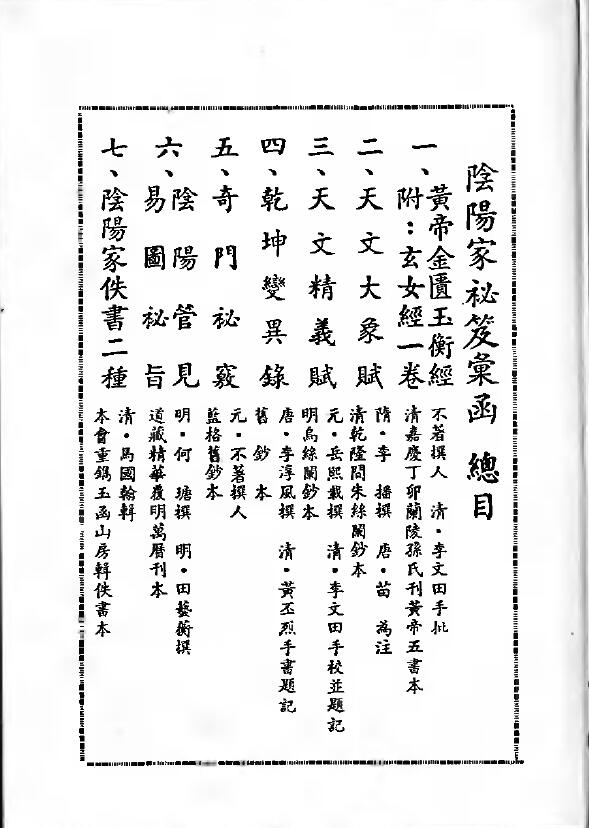 陰陽家祕笈彙函　總目
一、黃帝金匱玉衡經
附：玄女經一卷
不著撰人　清・李文田手批
清嘉慶丁卯蘭陵孫氏刊黃帝五書本
二、天文大象賦
隋・李　播撰　唐・苗　為注
清乾隆間朱絲闌鈔本
三、天文精義賦
元・岳熙載撰　清・李文田手校並題記
明烏絲闌鈔本
四、乾坤變異錄
唐・李淳風撰　清・黃丕烈手書題記
舊　鈔　本
五、奇門祕竅
元・不著撰人
藍格舊鈔本
六、陰陽管見
易圖祕旨
明・何　瑭撰　明・田藝蘅撰
道藏精華覆明萬曆刊本
七、陰陽家佚書二種
清・馬國翰輯
本會重鐫玉函山房輯佚書本